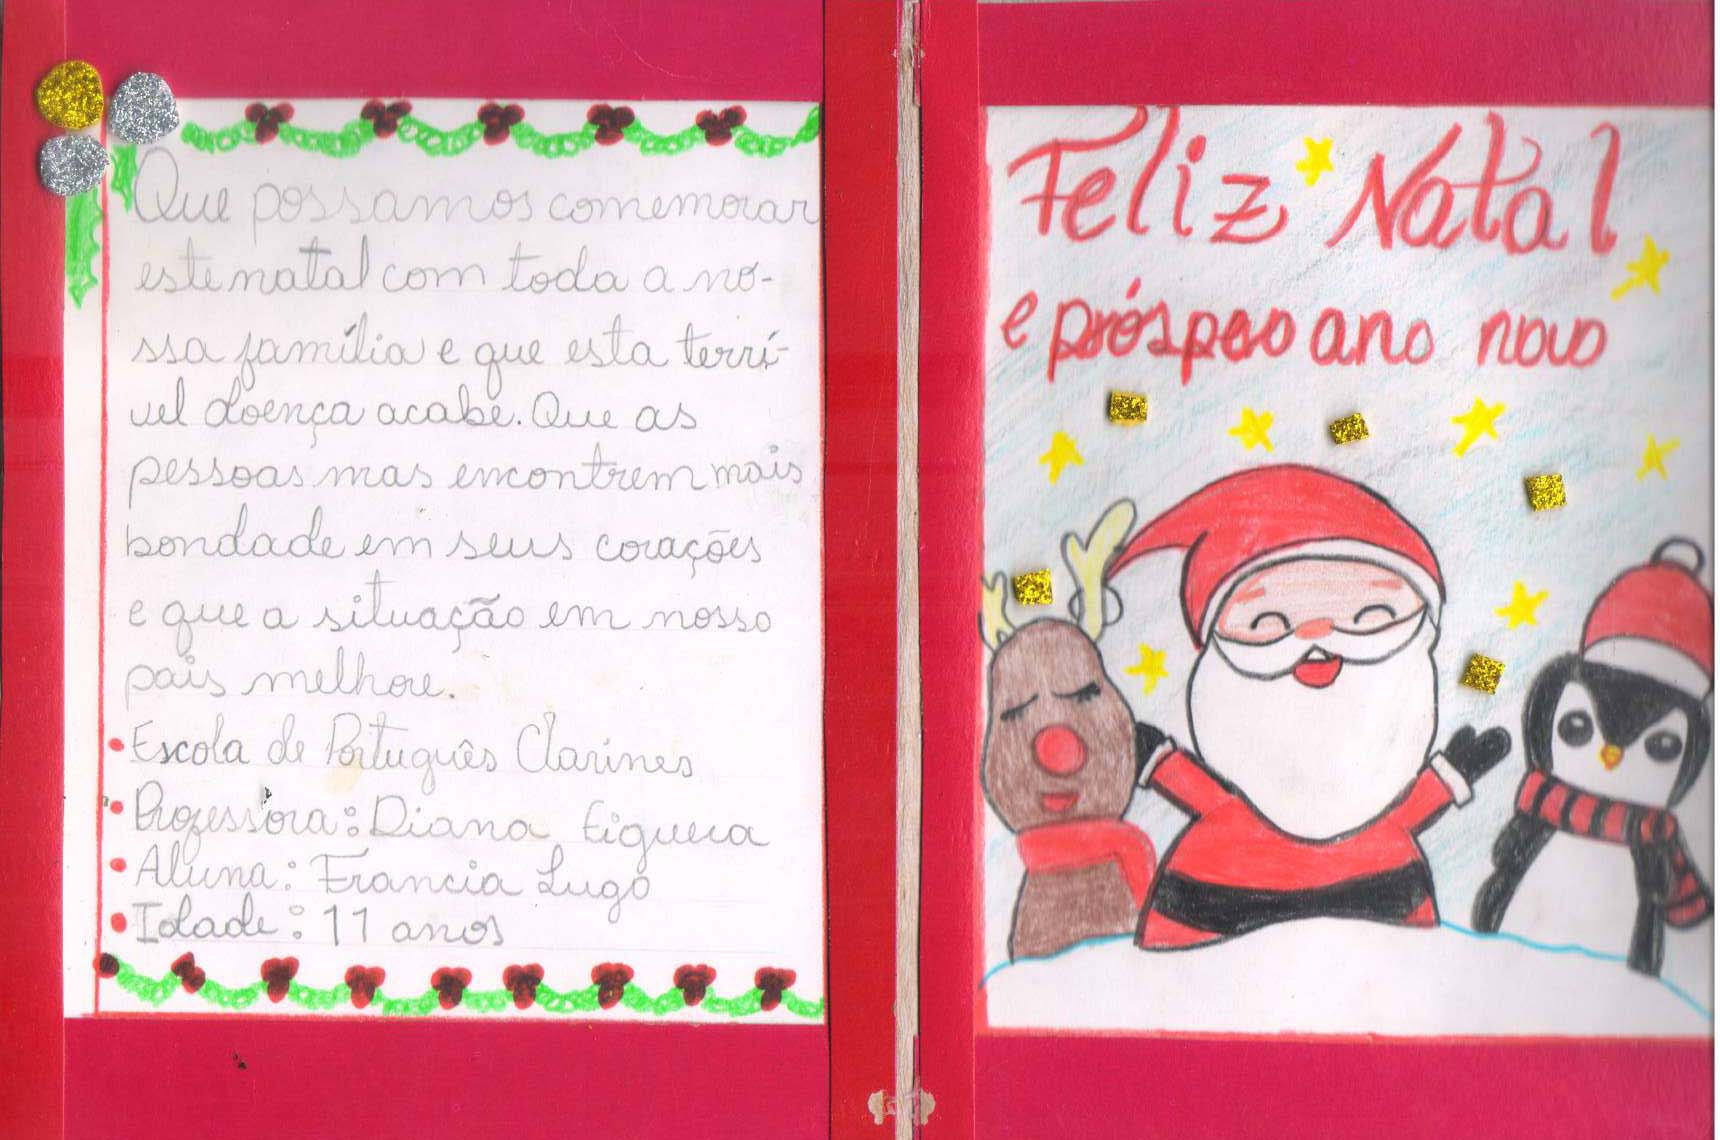 Que possamos comemorar
este natal com toda a no-
ssa família e que esta terrí-
vel doença acabe. Que as
pessoas mas encontrem mais
bondade em seus corações
e que a situação em nosso
pais melhore.
• Escola de Português Clarines
• Professora: Diana Figuera
• Aluna: Francia Lugo
• Idade: 11 anos
Feliz Natal
e próspero ano novo